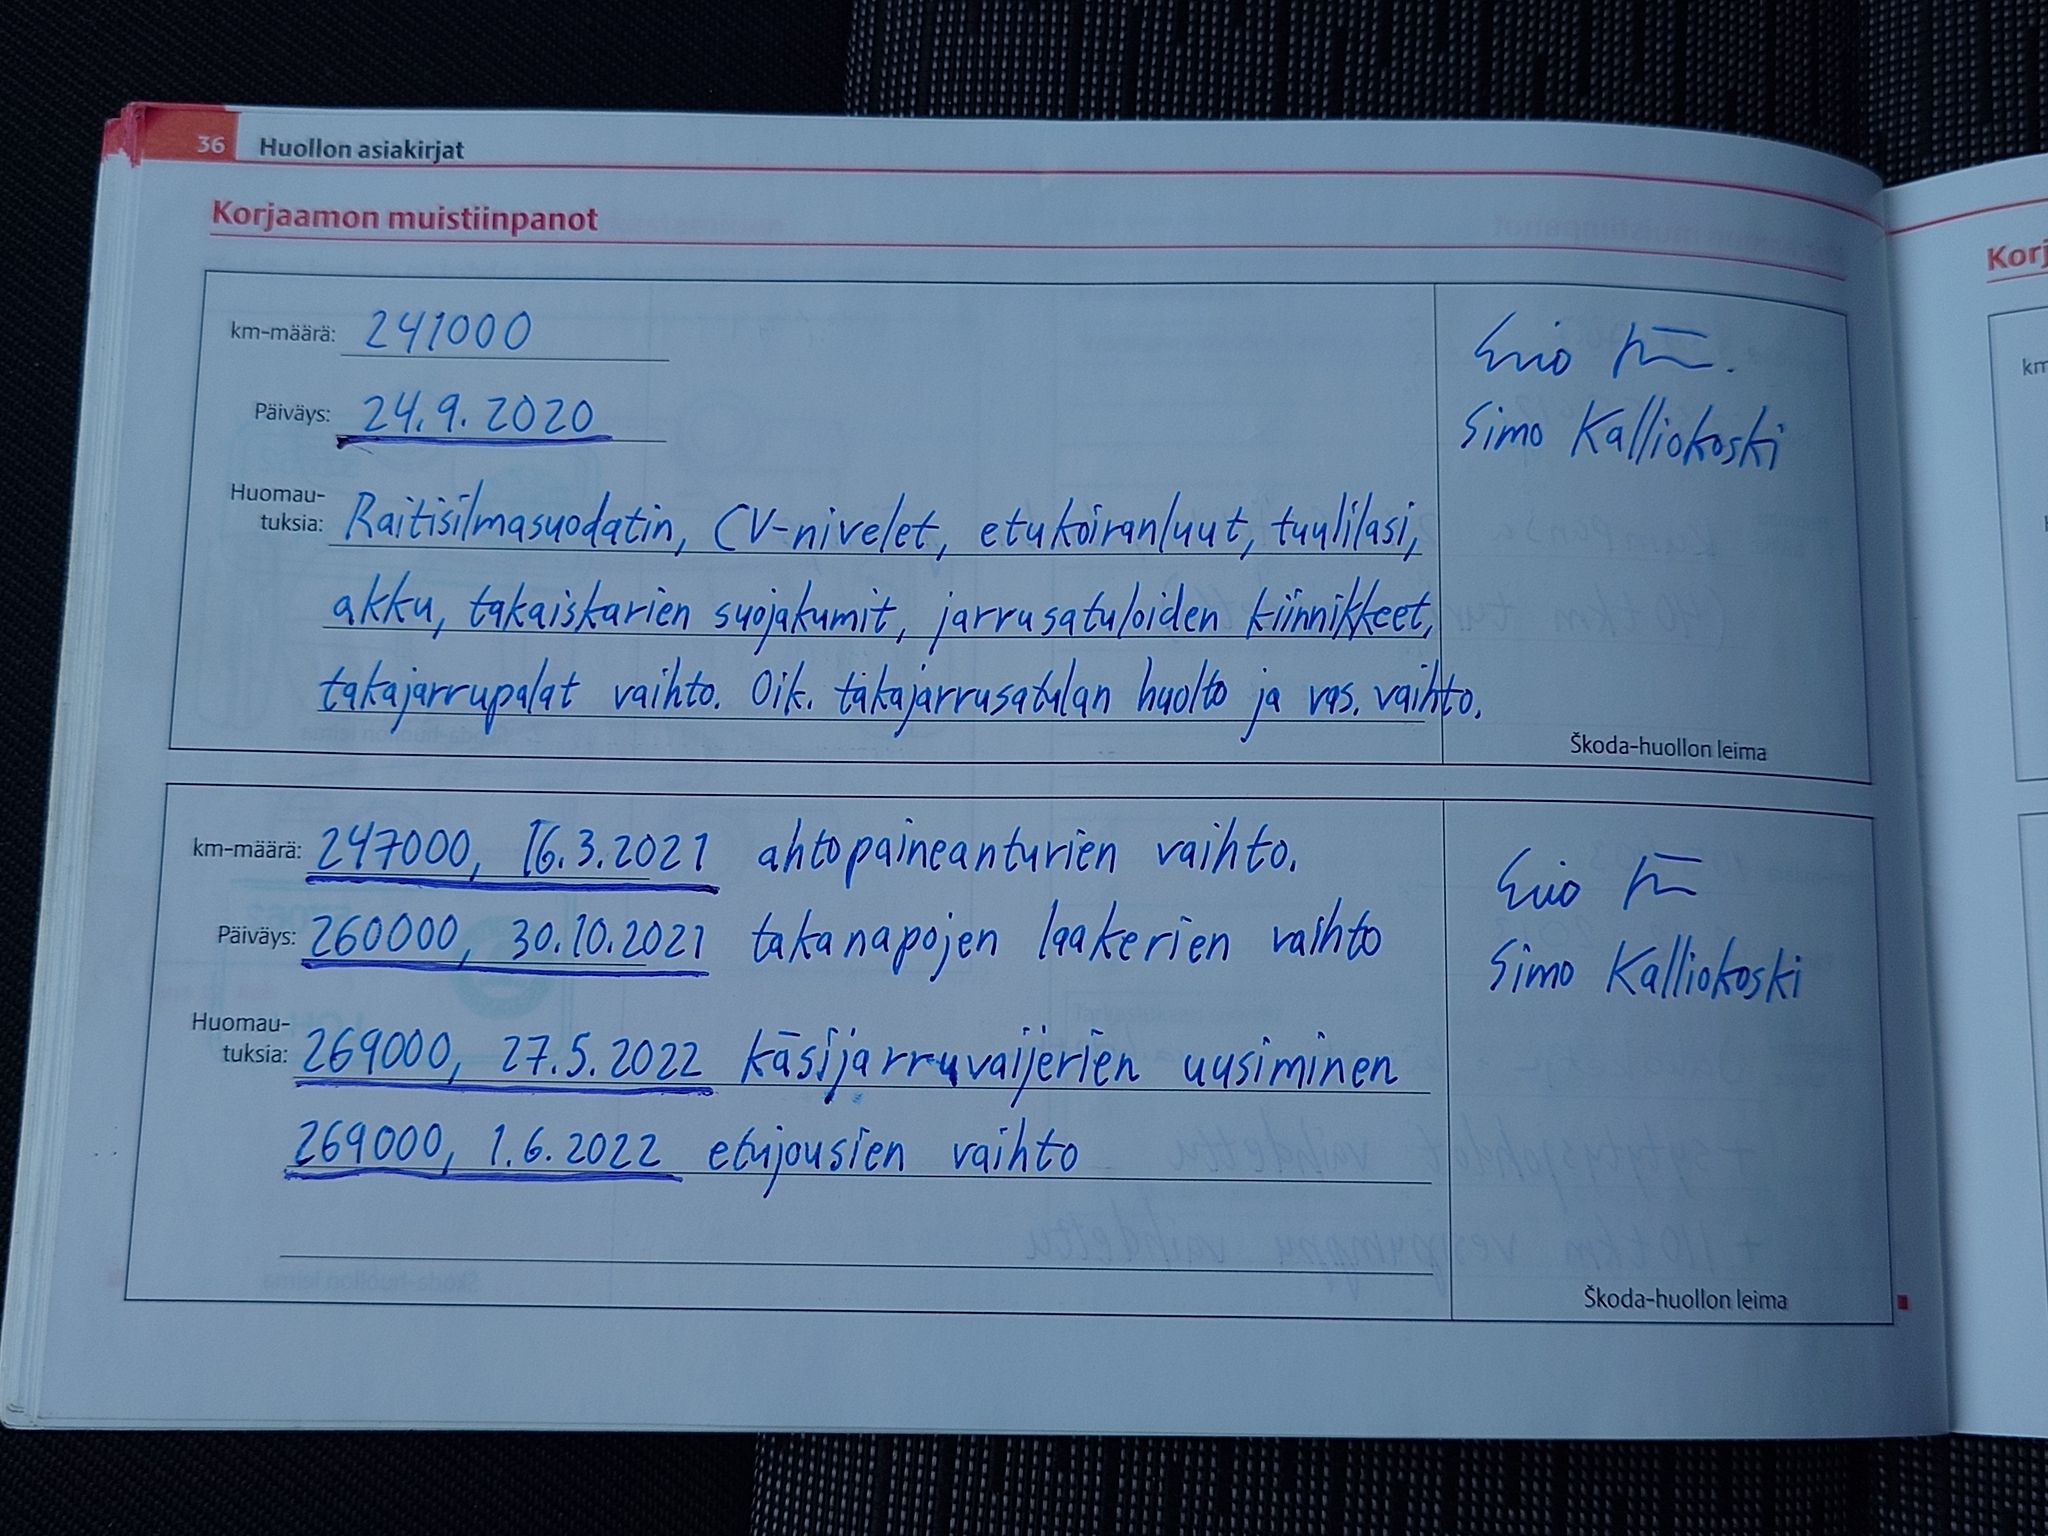 36 Huollon asiakirjat
Korjaamon muistiinpanot
Korj
km-määrä: 241000
Päiväys: 24.9.2020
Simo Kalliokoski
Huomau-
tuksia: Raitisilmasuodatin, CV-nivelet, etukoiranluut, tuulilasi,
akku, takaiskarien suojakumit, jarrusatuloiden kiinnikkeet,
takajarrupalat vaihto. Oik. takajarrusatulan huolto ja vas. vaihto.
Škoda-huollon leima
km-määrä: 247000, 16.3.2021 ahtopaineanturien vaihto.
Päiväys: 260000, 30.10.2021 takanapojen laakerien vaihto
Simo Kalliokoski
Huomau-
tuksia: 269000, 27.5.2022 käsijarruvaijerien uusiminen
269000, 1.6.2022 etujousien vaihto
Škoda-huollon leima